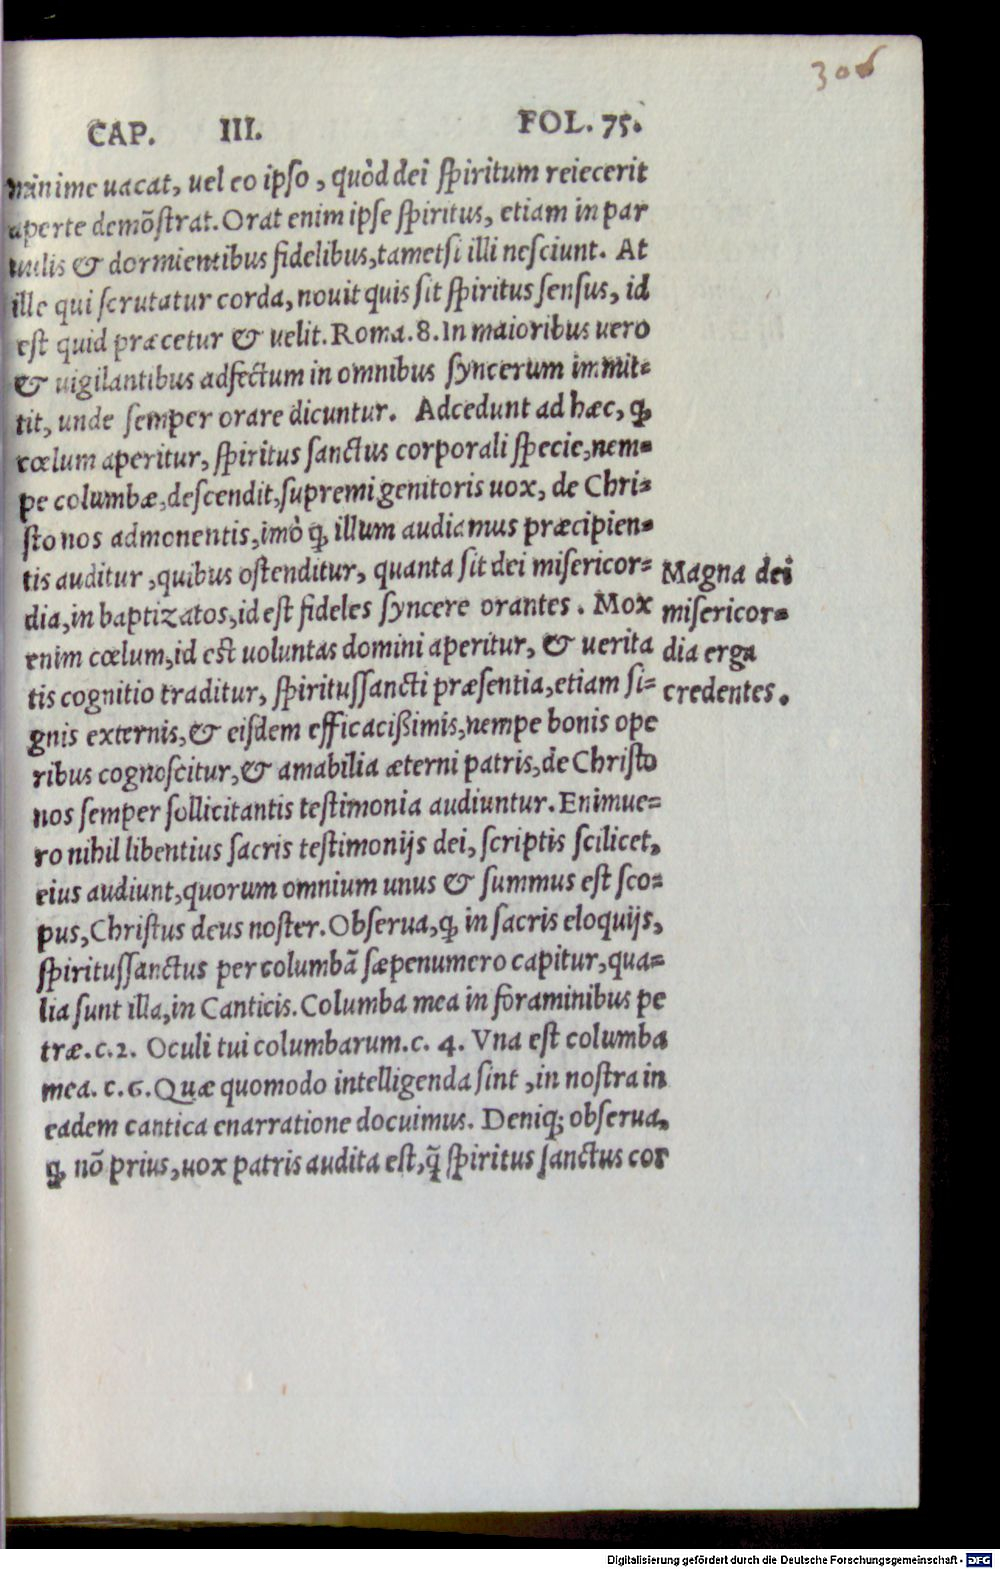 306
CAP. III. FOL. 75.
minime uacat, uel eo ipso, quòd dei spiritum reiecerit
aperte demõstrat. Orat enim ipse spiritus, etiam in par
uulis & dormientibus fidelibus, tametsi illi nesciunt. At
ille qui scrutatur corda, nouit quis sit spiritus sensus, id
est quid præcetur & uelit. Roma. 8. In maioribus uero
& uigilantibus adfectum in omnibus syncerum immit-
tit, unde semper orare dicuntur. Adcedunt ad hæc, ꝙ
cœlum aperitur, spiritus sanctus corporali specie, nem-
pe columbæ, descendit, supremi genitoris uox, de Chri-
sto nos admonentis, imò ꝙ illum audiamus præcipien-
tis auditur, quibus ostenditur, quanta sit dei misericor-
dia, in baptizatos, id est fideles syncere orantes. Mox
enim cœlum, id est uoluntas domini aperitur, & uerita
tis cognitio traditur, spiritussancti præsentia, etiam si-
gnis externis, & eisdem efficacißimis, nempe bonis ope
ribus cognoscitur, & amabilia æterni patris, de Christo
nos semper sollicitantis testimonia audiuntur. Enimue-
ro nihil libentius sacris testimonijs dei, scriptis scilicet,
eius audiunt, quorum omnium unus & summus est sco-
pus, Christus deus noster. Obserua, ꝙ in sacris eloquijs,
spiritussanctus per columbã sæpenumero capitur, qua-
lia sunt illa, in Canticis. Columba mea in foraminibus pe
træ. c. 2. Oculi tui columbarum. c. 4. Vna est columba
mea. c. 6. Quæ quomodo intelligenda sint, in nostra in
eadem cantica enarratione docuimus. Deniq; obserua,
ꝙ nõ prius, uox patris audita est, q̃ spiritus sanctus cor
Magna dei
misericor-
dia erga
credentes.
Digitalisierung gefördert durch die Deutsche Forschungsgemeinschaft - DFG